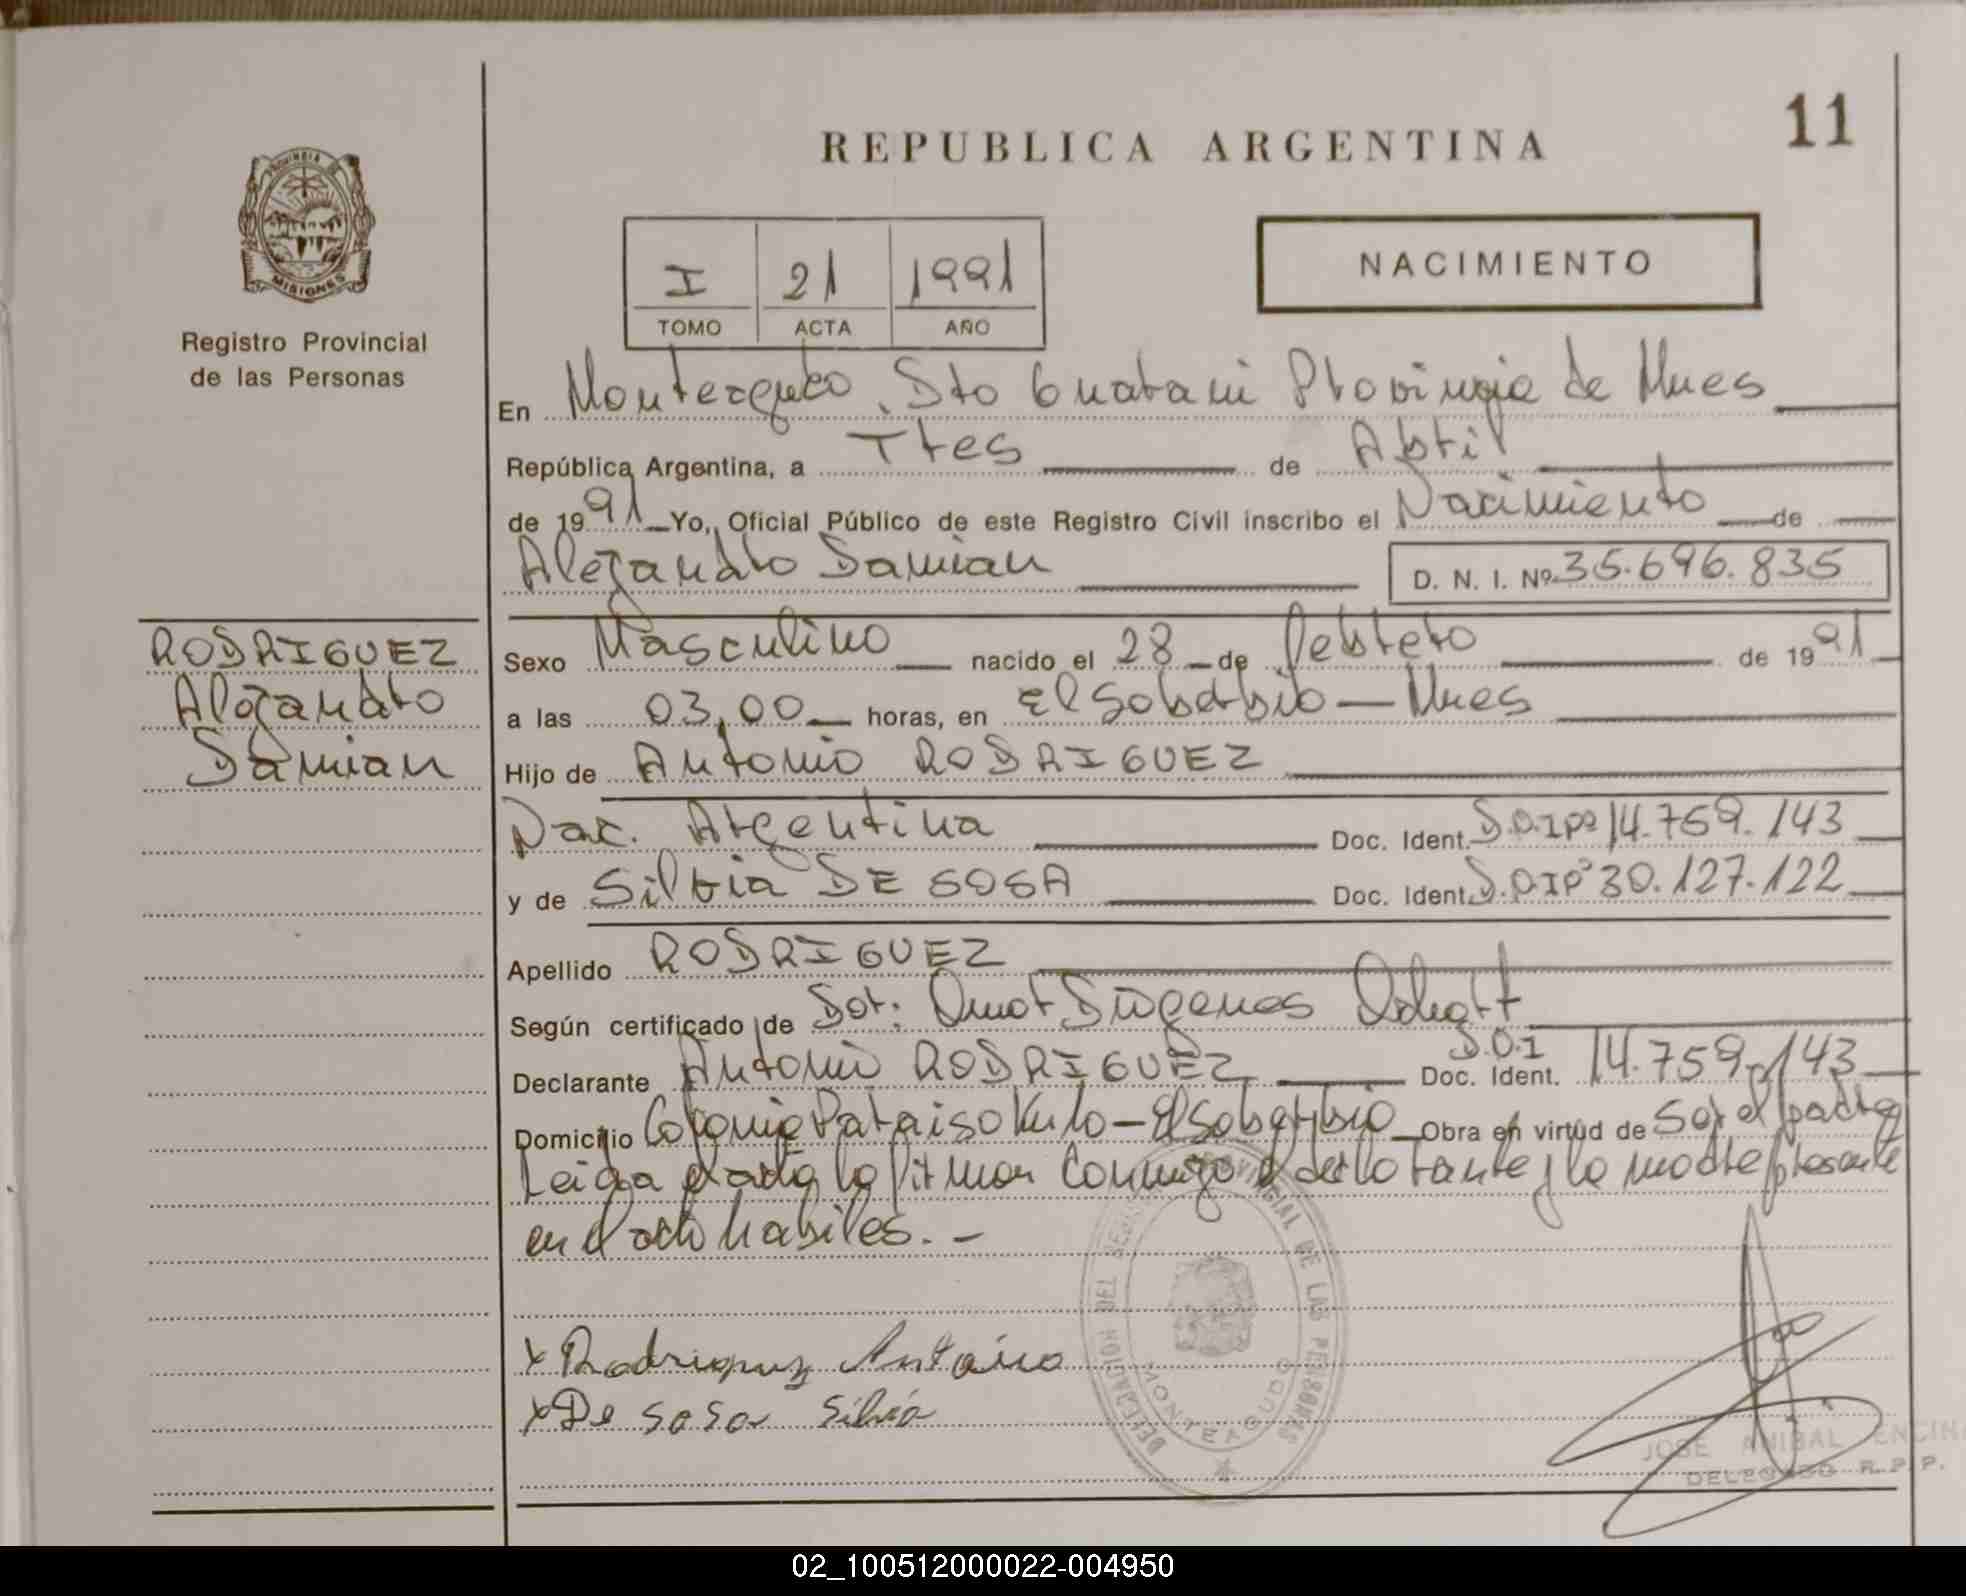 11
REPUBLICA ARGENTINA
PROVINCIA DE
MISIONES
Registro Provincial
de las Personas
NACIMIENTO
I 21 1991
TOMO ACTA AÑO
En Monteagudo, Dto Guarani Provincia de Mnes
República Argentina, a Tres de Abril
de 1991 Yo, Oficial Público de este Registro Civil inscribo el Nacimiento de
Alejandro Damian D. N. I. Nº 35.696.835
RODRIGUEZ
Alejandro
Damian
Sexo Masculino nacido el 28 de Febrero de 1991
a las 03,00 horas, en El Soberbio - Mnes
Hijo de Antonio RODRIGUEZ
Nac. Argentina Doc. Ident. 14.759.143
y de Silvia DE SOSA Doc. Ident. 30.127.122
Apellido RODRIGUEZ
Según certificado de Dor: Omar Diogenes
Declarante Antonio RODRIGUEZ Doc. Ident. D.O.I 14.759.143
Domicilio Colonia Paraiso - El Soberbio Obra en virtud de Ser el padre
Leida el acta la firman Conmigo el declarante y la madre presente
en el acto habiles. -
x Rodriguez Antonio
x De sosa Silvia
DELEGACION DEL REGISTRO PROVINCIAL DE LAS PERSONAS
MONTEAGUDO
JOSE ANIBAL ENCIN
DELEGADO R. P. P.
02_100512000022-004950